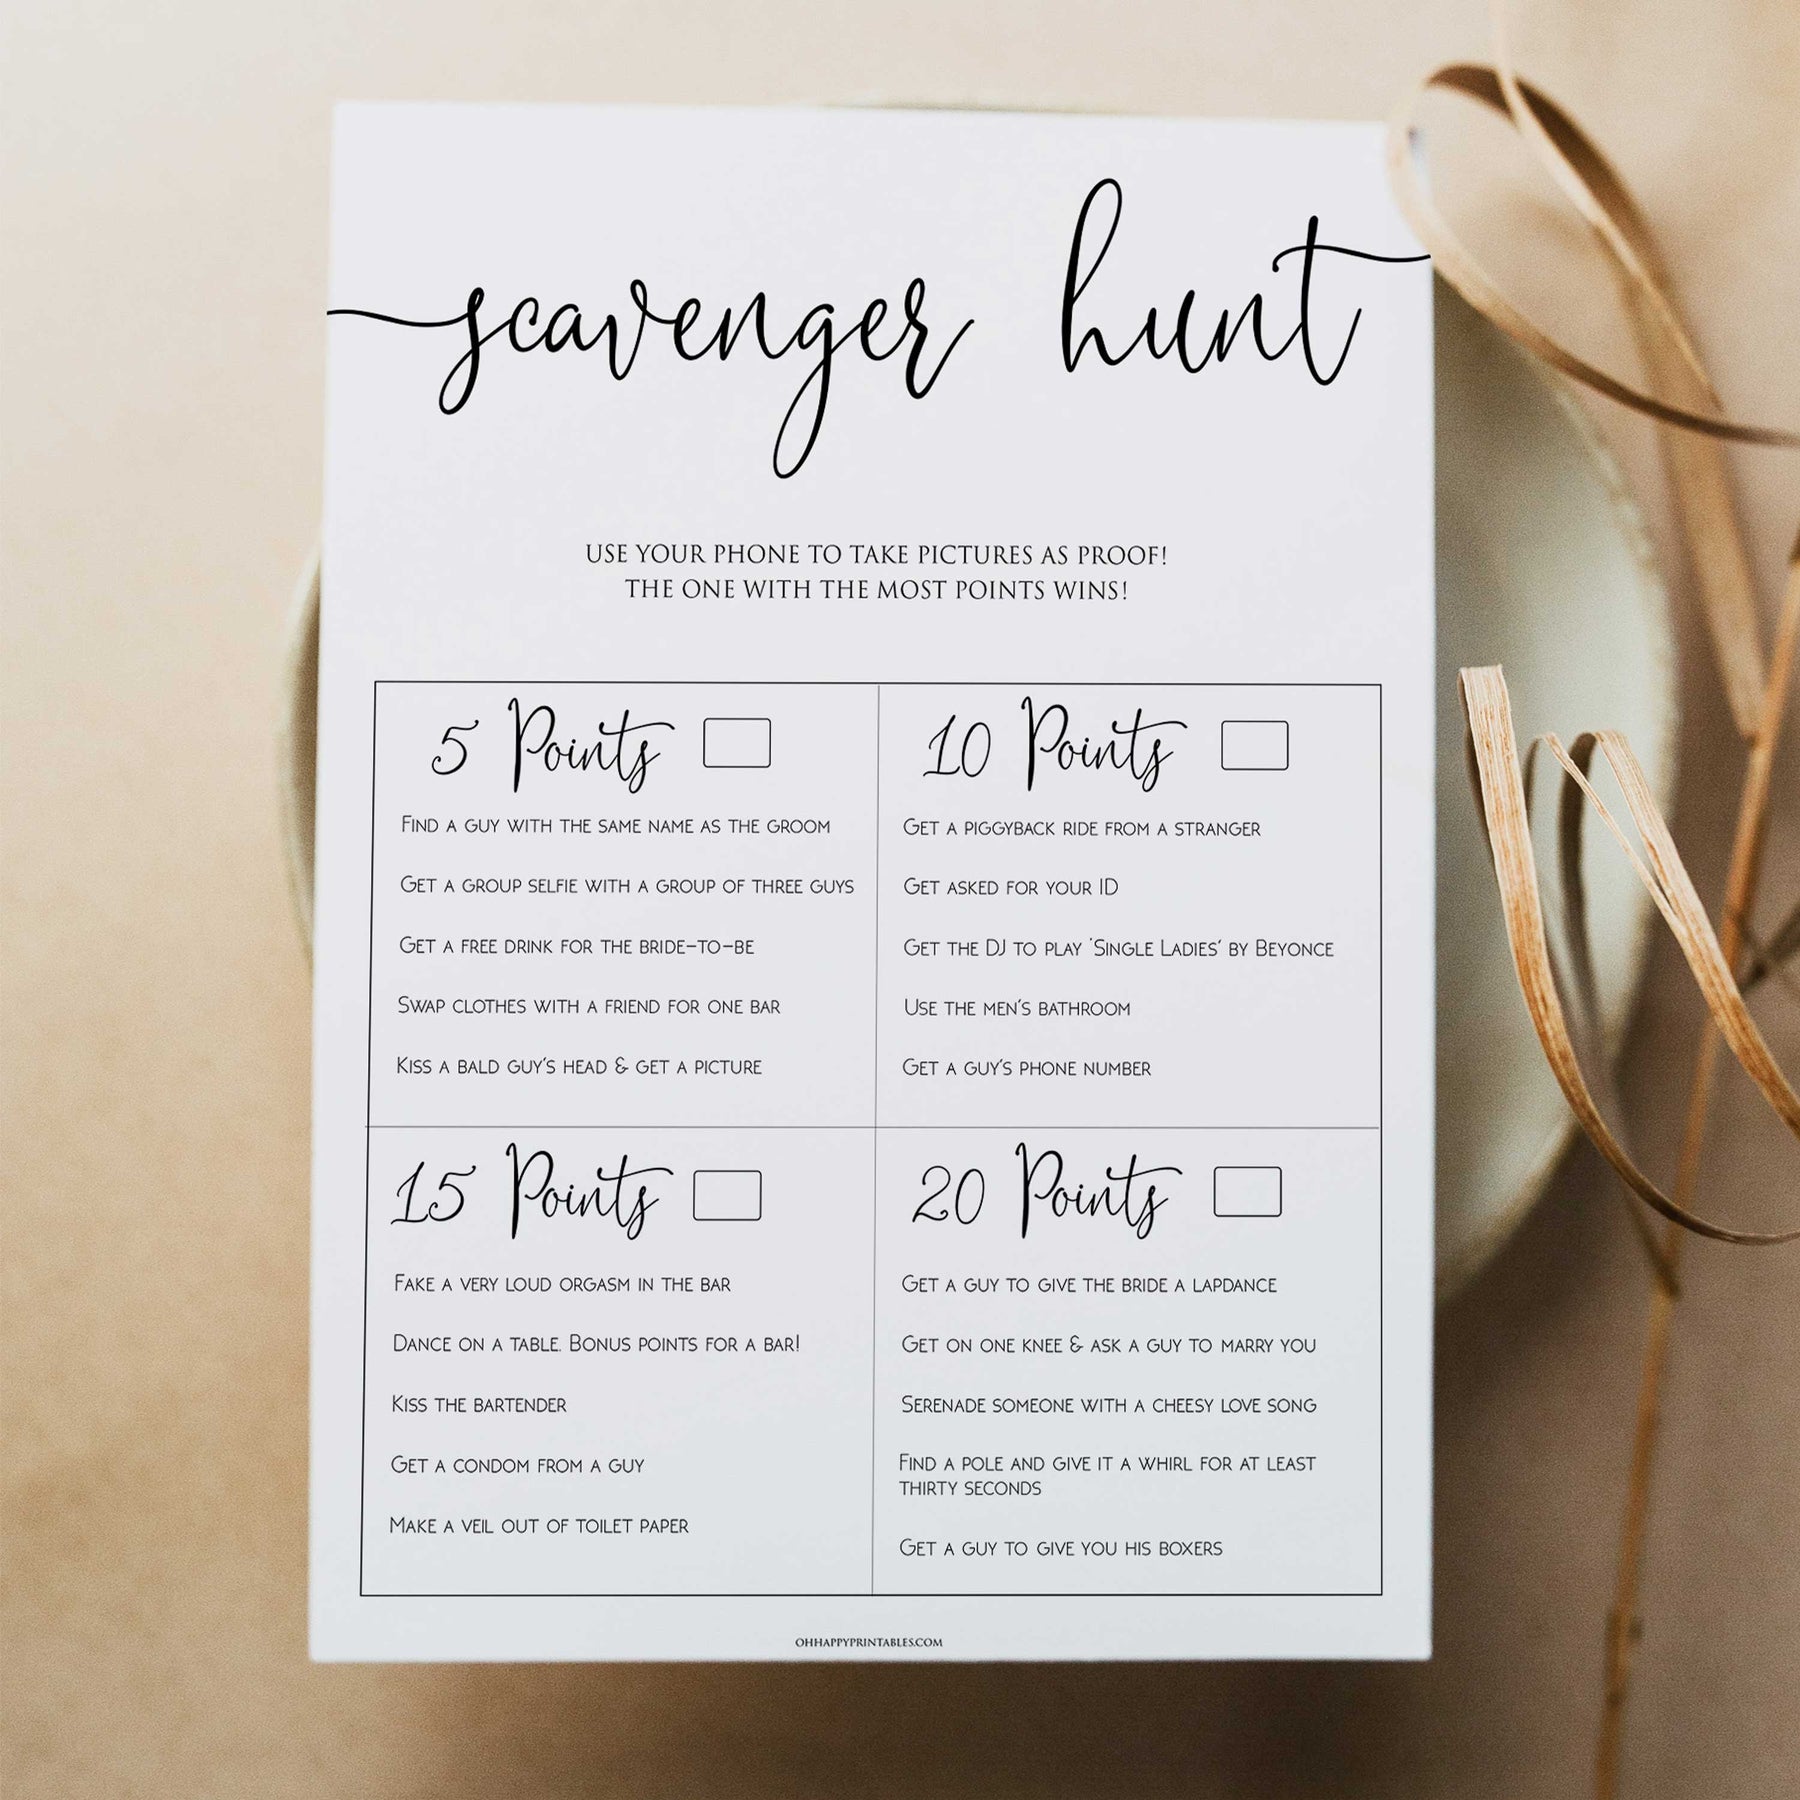 scavenger hunt
USE YOUR PHONE TO TAKE PICTURES AS PROOF!
THE ONE WITH THE MOST POINTS WINS!
5 Points
FIND A GUY WITH THE SAME NAME AS THE GROOM
GET A GROUP SELFIE WITH A GROUP OF THREE GUYS
GET A FREE DRINK FOR THE BRIDE-TO-BE
SWAP CLOTHES WITH A FRIEND FOR ONE BAR
KISS A BALD GUY'S HEAD & GET A PICTURE
10 Points
GET A PIGGYBACK RIDE FROM A STRANGER
GET ASKED FOR YOUR ID
GET THE DJ TO PLAY 'SINGLE LADIES' BY BEYONCE
USE THE MEN'S BATHROOM
GET A GUY'S PHONE NUMBER
15 Points
FAKE A VERY LOUD ORGASM IN THE BAR
DANCE ON A TABLE. BONUS POINTS FOR A BAR!
KISS THE BARTENDER
GET A CONDOM FROM A GUY
MAKE A VEIL OUT OF TOILET PAPER
20 Points
GET A GUY TO GIVE THE BRIDE A LAPDANCE
GET ON ONE KNEE & ASK A GUY TO MARRY YOU
SERENADE SOMEONE WITH A CHEESY LOVE SONG
FIND A POLE AND GIVE IT A WHIRL FOR AT LEAST
THIRTY SECONDS
GET A GUY TO GIVE YOU HIS BOXERS
OHHAPPYPRINTABLES.COM